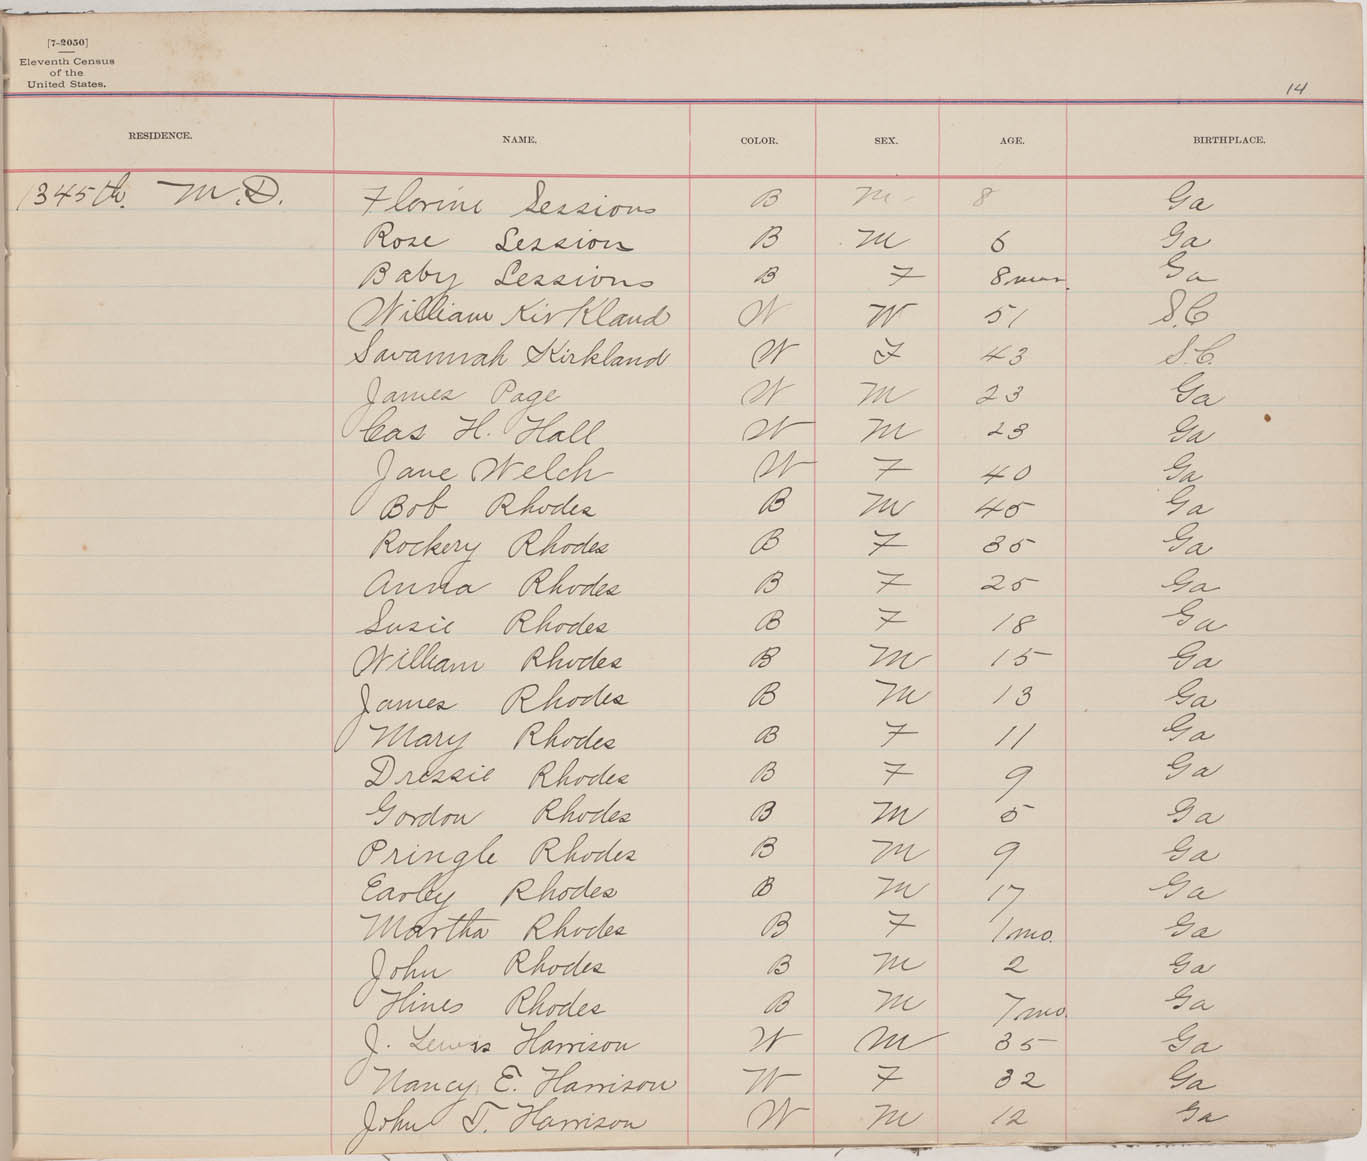 [7-2050]
Eleventh Census
of the
United States.
14
RESIDENCE. NAME. COLOR. SEX. AGE. BIRTHPLACE.
1345th. M.D. Florine Sessions B M 8 Ga
Rose Session B M 6 Ga
Baby Sessions B F 8 mos. Ga
William Kirkland W W 51 S.C
Savannah Kirkland W F 43 S.C.
James Page W M 23 Ga
Cas H. Hall W M 23 Ga
Jane Welch W F 40 Ga
Bob Rhodes B M 45 Ga
Rockery Rhodes B F 35 Ga
Anna Rhodes B F 25 Ga
Susie Rhodes B F 18 Ga
William Rhodes B M 15 Ga
James Rhodes B M 13 Ga
Mary Rhodes B F 11 Ga
Dressie Rhodes B F 9 Ga
Gordon Rhodes B M 5 Ga
Pringle Rhodes B M 9 Ga
Earley Rhodes B M 17 Ga
Martha Rhodes B F 1 mo. Ga
John Rhodes B M 2 Ga
Hines Rhodes B M 7 mo. Ga
J. Lewis Harrison W M 35 Ga
Nancy E. Harrison W F 32 Ga
John T. Harrison W M 12 Ga